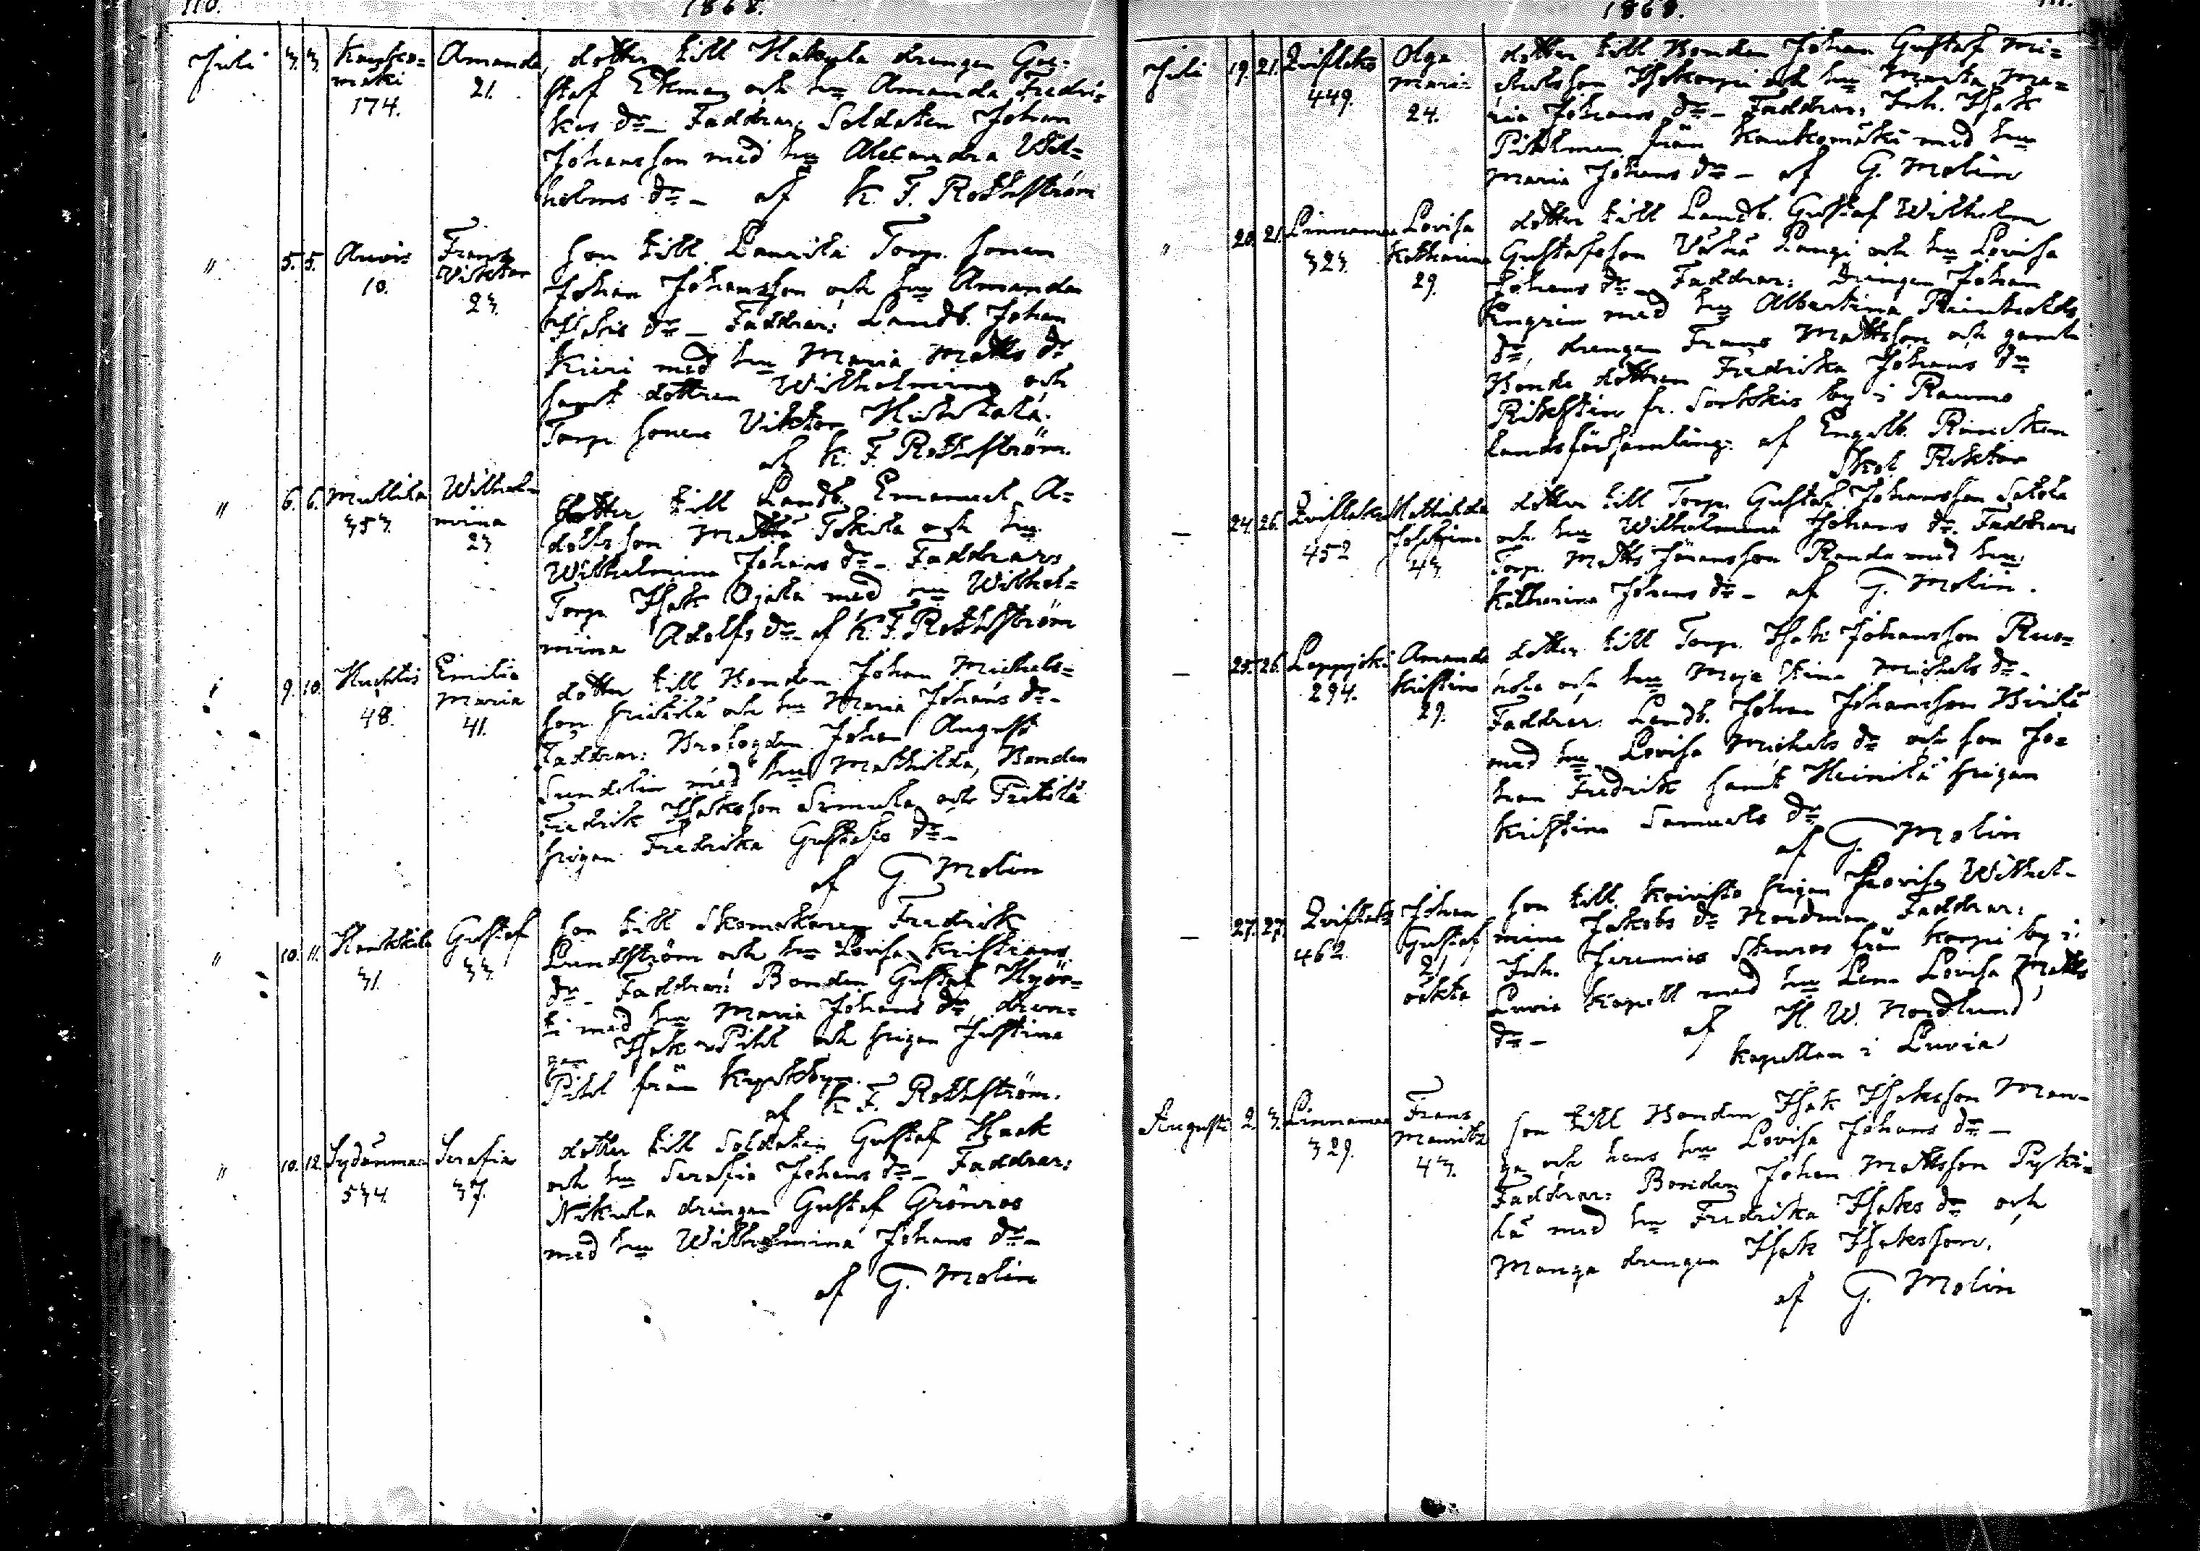 110.
1868.
Juli 3. 3. Kaukomäki 174. Amanda 21.
dotter till Hakula drengen Gu=
staf Ekman och hu Amanda Fredri=
kas dr_ Faddrar: Soldaten Johan
Johansson med hu Alexandra Wil=
helms dr_ af K. F. Rothström
" 5. 5. Anvis 10. Frans Viktor 23.
son till Laurila Torp. sonen
Johan Johansson och hu Amanda
Isaks dr_ Faddrar: Landb. Johan
Kiiri med hu Maria Matts dr
samt dottren Wilhelmina och
Torp. sonen Viktor
af K. F. Rothström.
" 6. 6. Mullila 353. Wilhelmina 23.
dotter till Landb. Emanuel A=
dolfsson Mattila och hu
Wilhelmina Johans dr_ Faddrar:
Torp. Isak Ojala med hu Wilhel=
mina Adolfs dr_ af K. F. Rothström
9. 10. Huhtis 48. Emilia Maria 41.
dotter till Bonden Johan Michels=
son och hu Maria Johans dr_
Faddrar: Brofogden Johan August
Sundelin med hu Mathilda, Bonden
Fredrik Isaksson och
pigan Fredrika Gustafs dr_
af G. Molin
" 10. 11. Henkkila 31. Gustaf 33.
son till Skomakaren Fredrik
Lundström och hu Lovisa Kristians
dr_ Faddrar: Bonden Gustaf Hyör=
ti med hu Maria Johans dr, dren=
gen Isak Pihl och pigan Justina
Pihl från
af K. F. Rothström.
" 10. 12. Sydänmaa 534. Serafia 37.
dotter till Soldaten Gustaf Haak
och hu Serafia Johans dr_ Faddrar:
Nikula drengen Gustaf Grönroos
med hu Wilhelmina Johans dr_
af G. Molin
1868.
111.
Juli 19. 21. 449. Olga Maria 24.
dotter till Bonden Johan Gustaf Mi=
chelsson och hu Maria Ma=
ria Johans dr_ Faddrar: Inh. Isak
Pihlman från Kaukomäki med hu
Maria Johans dr_ af G. Molin
" 20. 21. Linnamaa 323. Lovisa Katharina 29.
dotter till Landb. Gustaf Wilhelm
Gustafsson Vähä Langi och hu Lovisa
Johans dr_ Faddrar: Drengen Johan
Engrin med hu Albertina Reinholds
dr, drengen Frans Mattsson och gamla
Bonde dottren Fredrika Johans dr
fr. Sorkkis by i Raumo
landsförsamling. af Engelb. Rancken
Skol Rektor
_ 24. 26. 452 Mathilda Josefina 43.
dotter till Torp. Gustaf Johansson Salola
och hu Wilhelmina Johans dr. Faddrar:
Torp. Matts Johansson Randa med hu
Katharina Johans dr_ af G. Molin.
_ 25. 26. Leppijoki 294. Amanda Kristina 29.
dotter till Torp. Isak Johansson Rus=
kola och hu Maja Stina Michels dr_
Faddrar: Landb. Johan Johansson
med hu Lovisa Michels dr och son Jo=
han Fredrik samt Heinilä pigan
Kristina Samuels dr
af G. Molin
_ 27. 27. 462. Johan Gustaf 21 oäkta
son till Koivisto pigan Lovisa Wilhel=
mina Jakobs dr Nordman Faddrar:
Inh. Jeremias Stenroos från Korpi by i
Luvia kapell med hu Lena Lovisa Matts
dr_ af H. W. Nordlund
Kapellan i Luvia
Augusti 2. 3. Linnamaa 329. Frans Mauritz 43.
son till Bonden Isak Isaksson Man=
ga och hans hu Lovisa Johans dr_
Faddrar: Bonden Johan Mattsson Pyhä=
lä med hu Fredrika Isaks dr och
Manga drengen Isak Isaksson.
af G. Molin